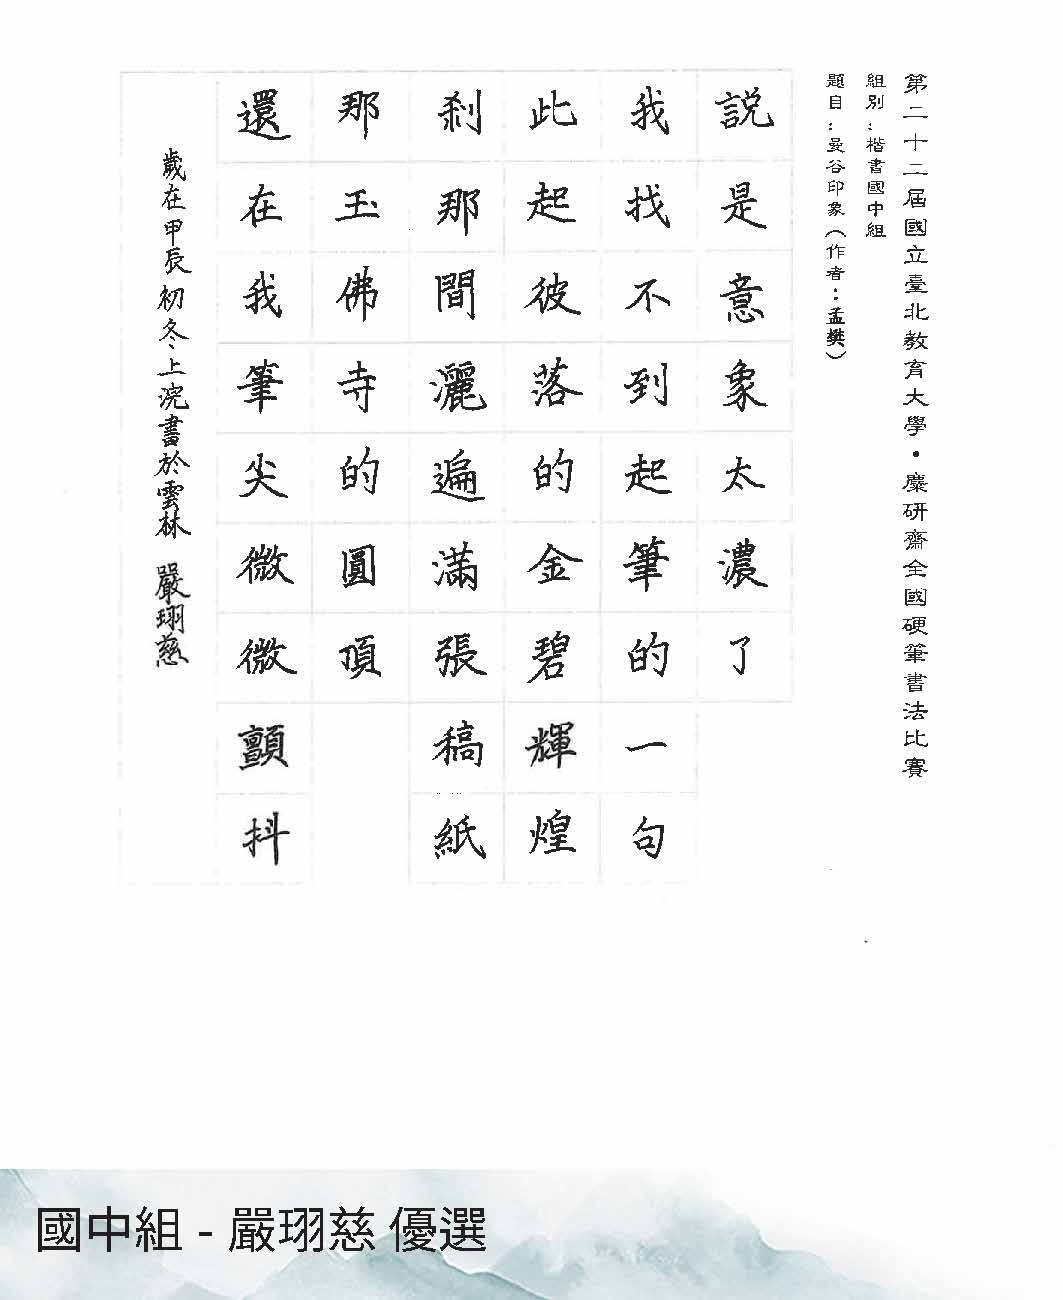 第二十二屆國立臺北教育大學•麋研齋全國硬筆書法比賽
組別：楷書國中組
題目：曼谷印象（作者：孟樊）
說是意象太濃了
我找不到起筆的一句
此起彼落的金碧輝煌
剎那間灑遍滿張稿紙
那玉佛寺的圓頂
還在我筆尖微微顫抖
歲在甲辰初冬上浣書於雲林 嚴珝慈
國中組 - 嚴珝慈 優選